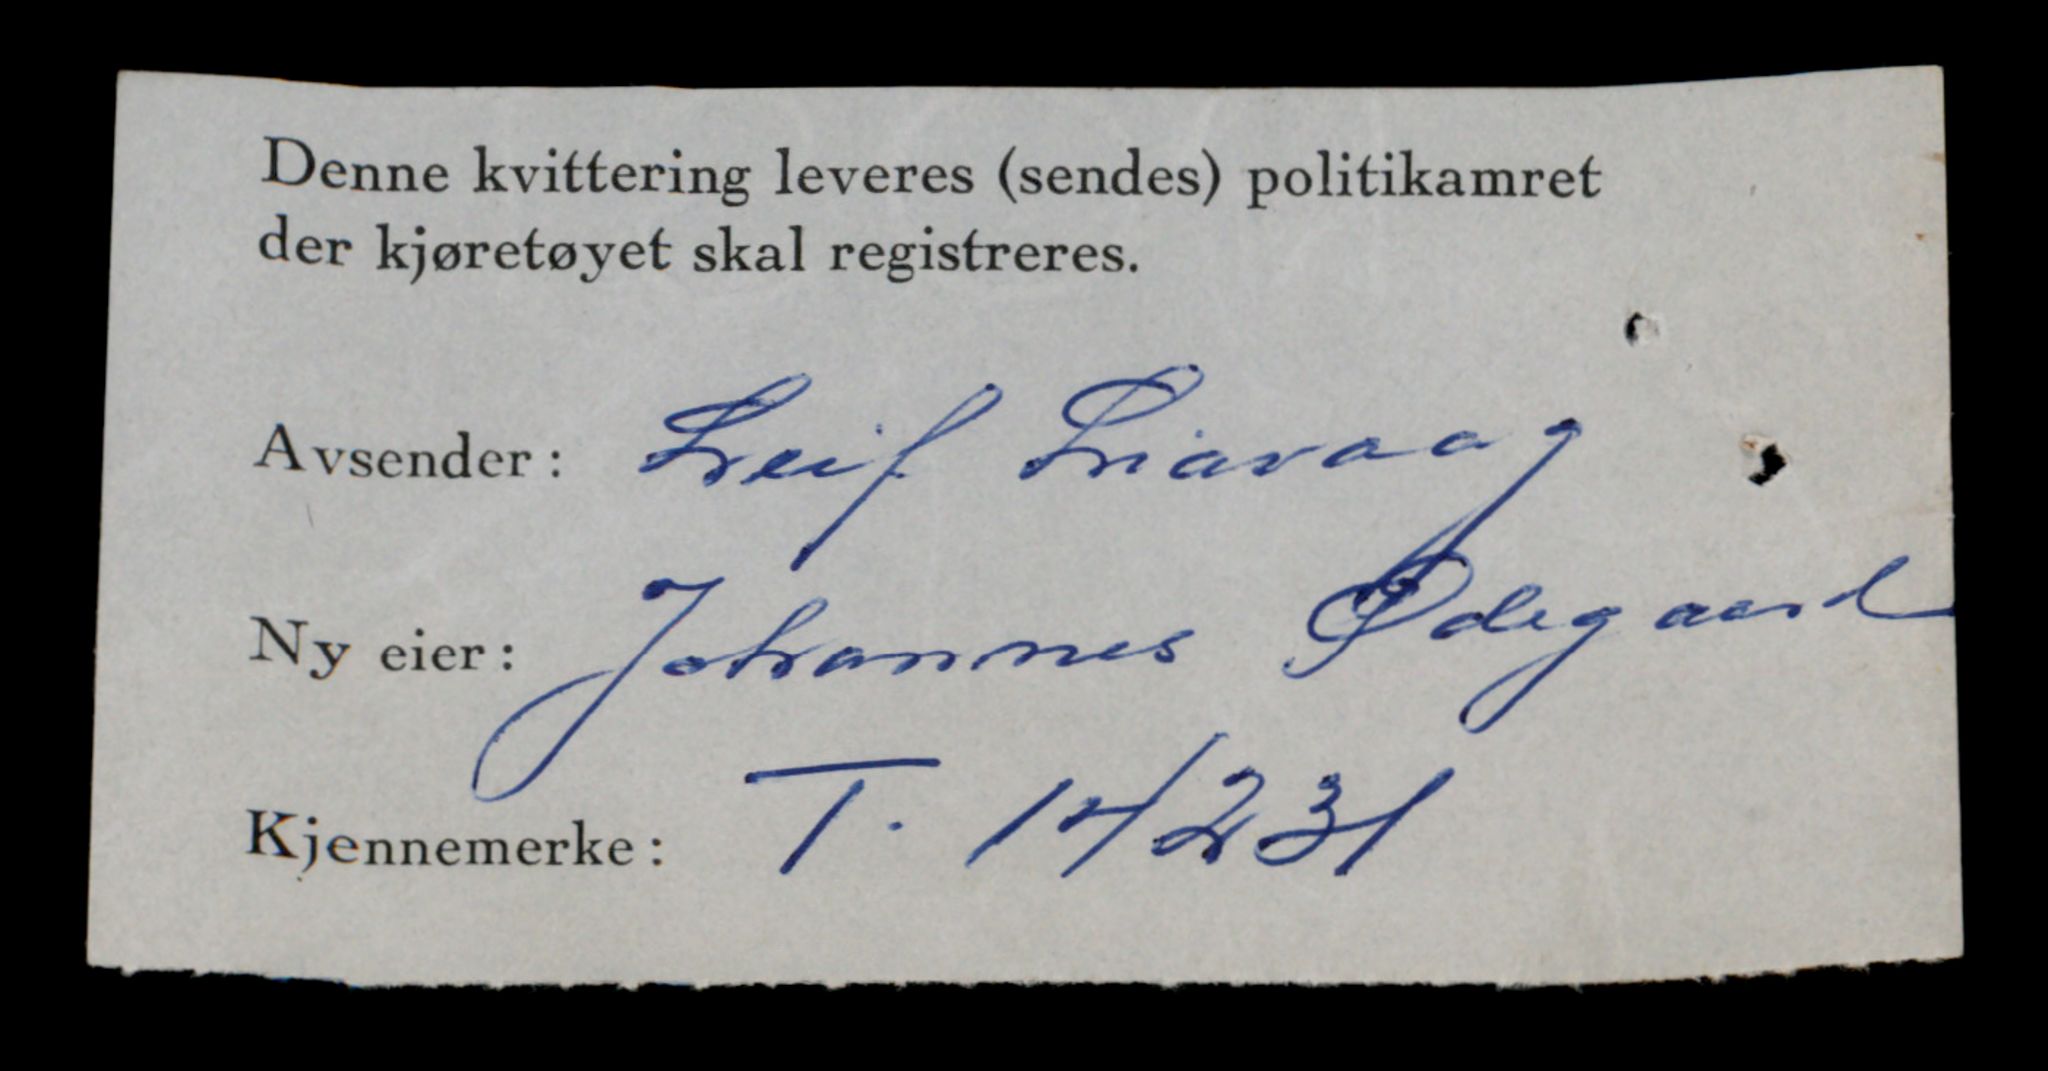 Denne kvittering leveres (sendes) politikamret
der kjøretøyet skal registreres.
Avsender: Leif Liavaag
Ny eier: Johannes Ødegaard
Kjennemerke: T. 14231